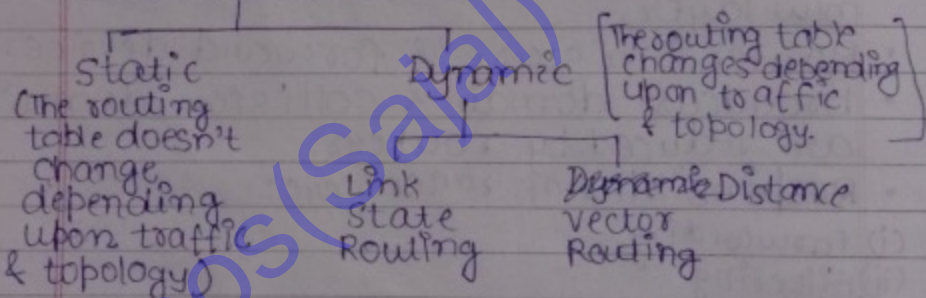 Static
(The routing
table doesn't
change
depending
upon traffic
& topology)
Dynamic
[The routing table
changes depending
upon traffic
& topology.]
Link
State
Routing
Distance
Vector
Routing
os(Sajal)